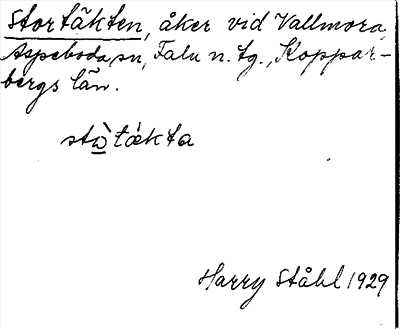 Stortäkten, åker vid Vallmora,
Aspeboda sn, Falu n. tg., Koppar-
bergs län.
stɷ̀tǽkta
Harry Ståhl 1929